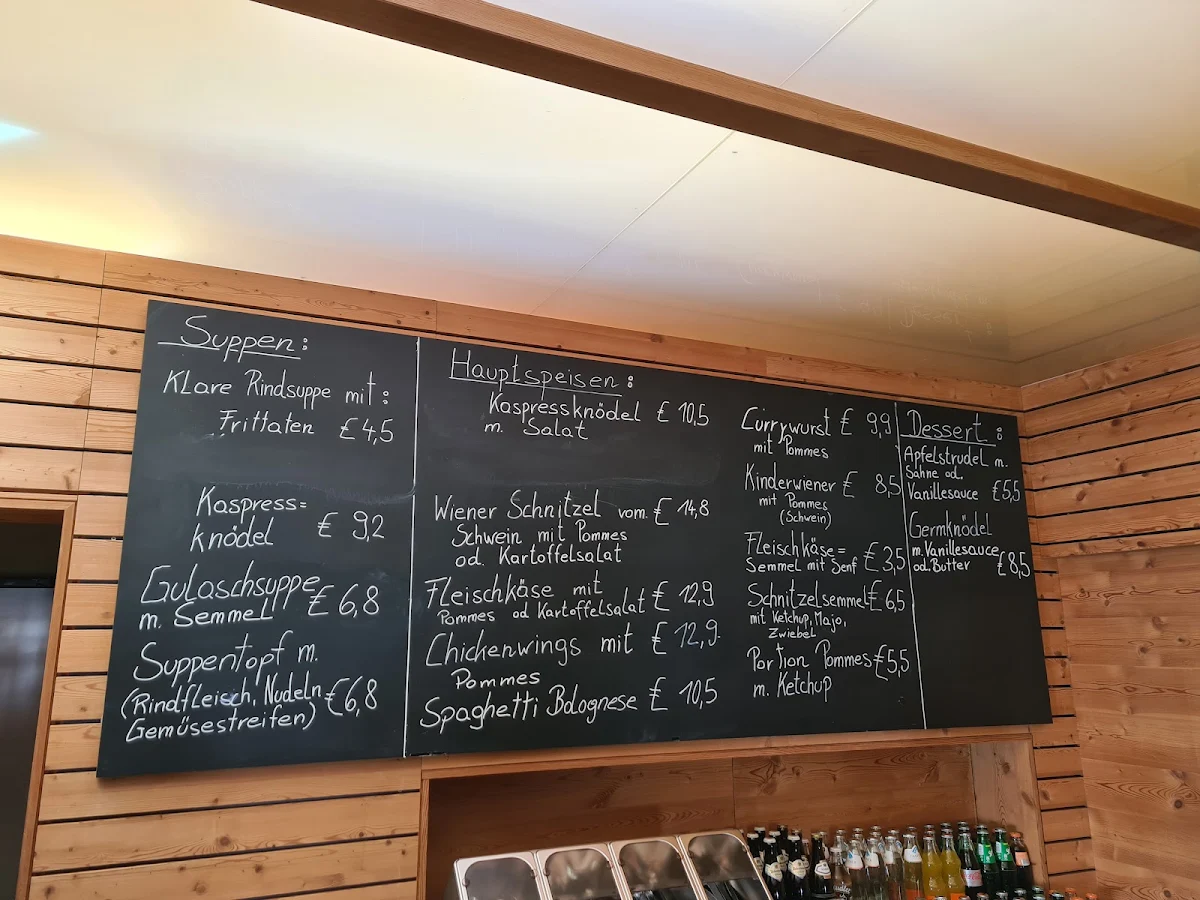 Suppen:
Klare Rindsuppe mit:
Frittaten €4,5
Kaspress=
knödel € 9,2
Gulaschsuppe
m. Semmel € 6,8
Suppentopf m.
(Rindfleisch, Nudeln €6,8
Gemüsestreifen)
Hauptspeisen:
Kaspressknödel € 10,5
m. Salat
Wiener Schnitzel vom € 14,8
Schwein mit Pommes
od. Kartoffelsalat
Fleischkäse mit
Pommes od Kartoffelsalat € 12,9
Chickenwings mit € 12,9
Pommes
Spaghetti Bolognese € 10,5
Currywurst € 9,9
mit Pommes
Kinderwiener € 8,5
mit Pommes
(Schwein)
Fleischkäse=
Semmel mit Senf € 3,5
Schnitzelsemmel € 6,5
mit Ketchup, Majo,
Zwiebel
Portion Pommes €5,5
m. Ketchup
Dessert:
Apfelstrudel m.
Sahne od.
Vanillesauce €5,5
Germknödel
m. Vanillesauce
od. Butter €8,5